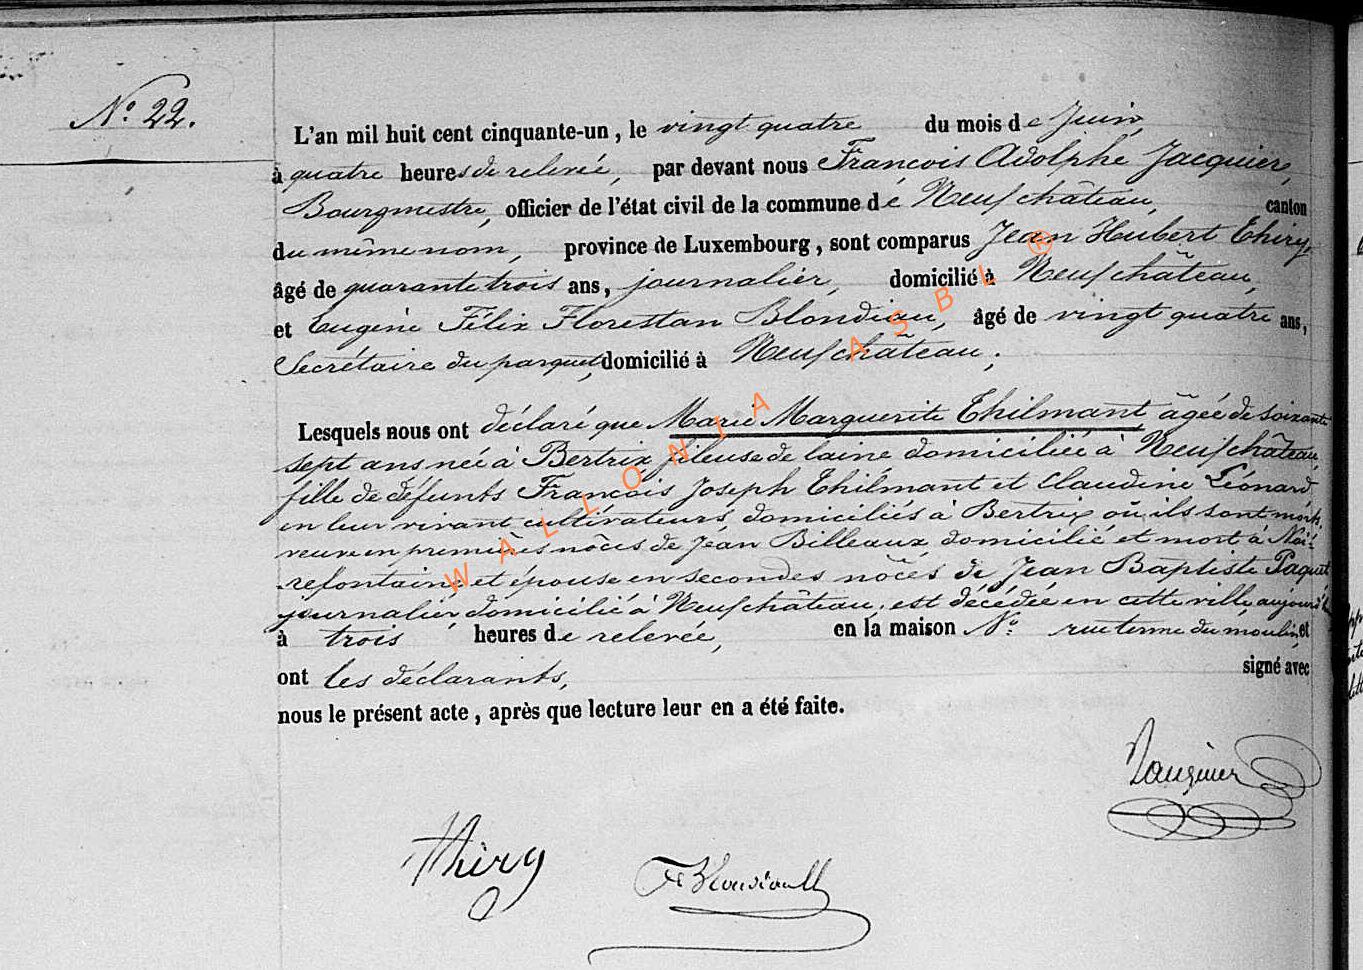 N° 22.
L'an mil huit cent cinquante-un, le vingt quatre du mois de Juin,
à quatre heures de relevée, par devant nous François Adolphe Jacquier,
Bourgmestre, officier de l'état civil de la commune de Neufchâteau, canton
du même nom, province de Luxembourg, sont comparus Jean Hubert Thiry,
âgé de quarante trois ans, journalier, domicilié à Neufchâteau,
et Eugène Félix Florestan Blondiau, âgé de vingt quatre ans,
Secrétaire du parquet, domicilié à Neufchâteau;
Lesquels nous ont déclaré que Marie Marguerite Thilmant âgée de soixante
sept ans née à Bertrix, fileuse de laine domiciliée à Neufchâteau,
fille de défunts François Joseph Thilmant et Claudine Léonard
en leur vivant cultivateurs domiciliés à Bertrix où ils sont morts,
veuve en premières nôces de Jean Billeaux domicilié et mort à Noi-
refontaine et épouse en secondes nôces de Jean Baptiste Paquet
journalier, domicilié à Neufchâteau, est décédée en cette ville aujourd'hui
à trois heures de relevée, en la maison N° rue terme du moulin, et
ont les déclarants, signé avec
nous le présent acte, après que lecture leur en a été faite.
Jacquier
Thiry
F Blondiau
WALLONIA ASBL ®